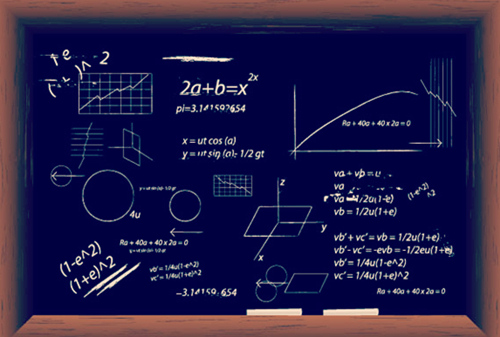 2a+b=x^2x
pi=3.14159?654
Ra + 40a + 40 x 2a = 0
x = ut cos (a)
y = ut sin (a)- 1/2 gt
4u
z
y
x
va + vb = u
va
va = 1/2u(1-e)
vb = 1/2u(1+e)
(1-e^2)
^2
Ra + 40a + 40 x 2a = 0
(1-e^2)
(1+e)^2
vb' = 1/4u(1-e^2)
vc' = 1/4u(1+e)^2
vb'+ vc' = vb = 1/2u(1+e)
vb'- vc' = -evb = -1/2eu(1+e)
vb' = 1/4u(1-e^2)
vc' = 1/4u(1+e)^2
Ra + 40a + 40 x 2a = 0